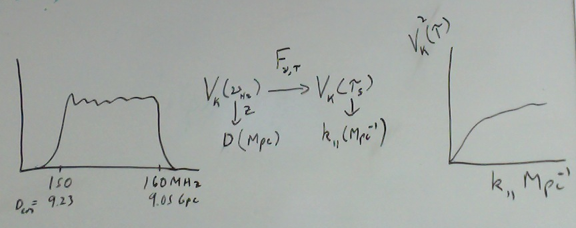 150 160 MHz
D_cm = 9.23 9.05 Gpc
F_ν,τ
V_K(ν_Hz) → V_K(τ_s)
↓z ↓
D(Mpc) k_∥(Mpc⁻¹)
V_K²(τ)
k_∥ Mpc⁻¹